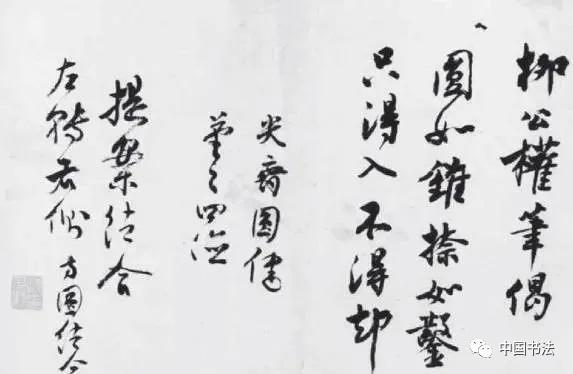 柳公權筆偈
圓如錐捺如鑿
只得入不得却
尖齊圓健
筆之四德
提案结合
左转右侧
方圆结合
中国书法